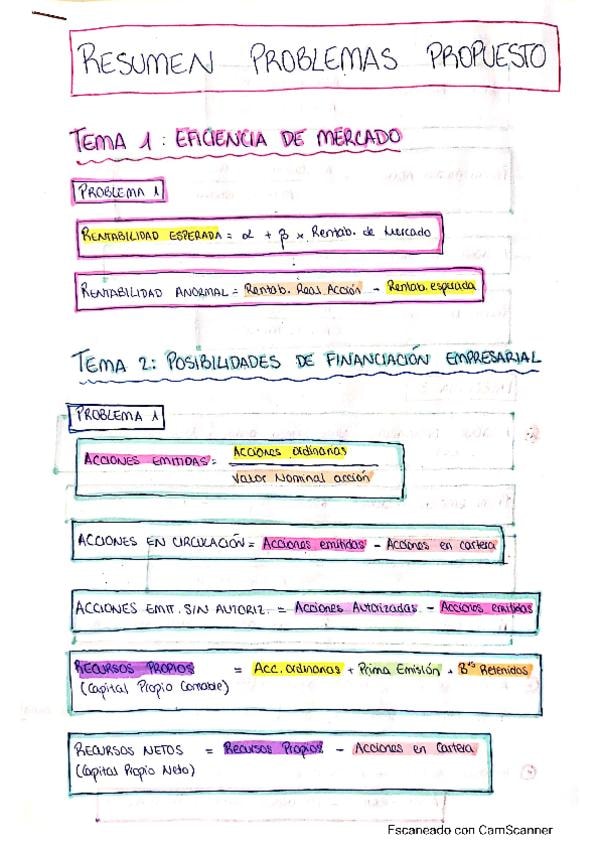 RESUMEN PROBLEMAS PROPUESTO
TEMA 1: EFICIENCIA DE MERCADO
PROBLEMA 1
RENTABILIDAD ESPERADA = α + β x Rentab. de Mercado
RENTABILIDAD ANORMAL = Rentab. Real Acción - Rentab. esperada
TEMA 2: POSIBILIDADES DE FINANCIACIÓN EMPRESARIAL
PROBLEMA 1
ACCIONES EMITIDAS = Acciones ordinarias
Valor Nominal acción
ACCIONES EN CIRCULACIÓN = Acciones emitidas - Acciones en cartera
ACCIONES EMIT. SIN AUTORIZ. = Acciones Autorizadas - Acciones emitidas
RECURSOS PROPIOS = Acc. ordinarias + Prima Emisión + Bºs Retenidos
(Capital Propio Contable)
RECURSOS NETOS = Recursos Propios - Acciones en Cartera
(Capital Propio Neto)
Escaneado con CamScanner